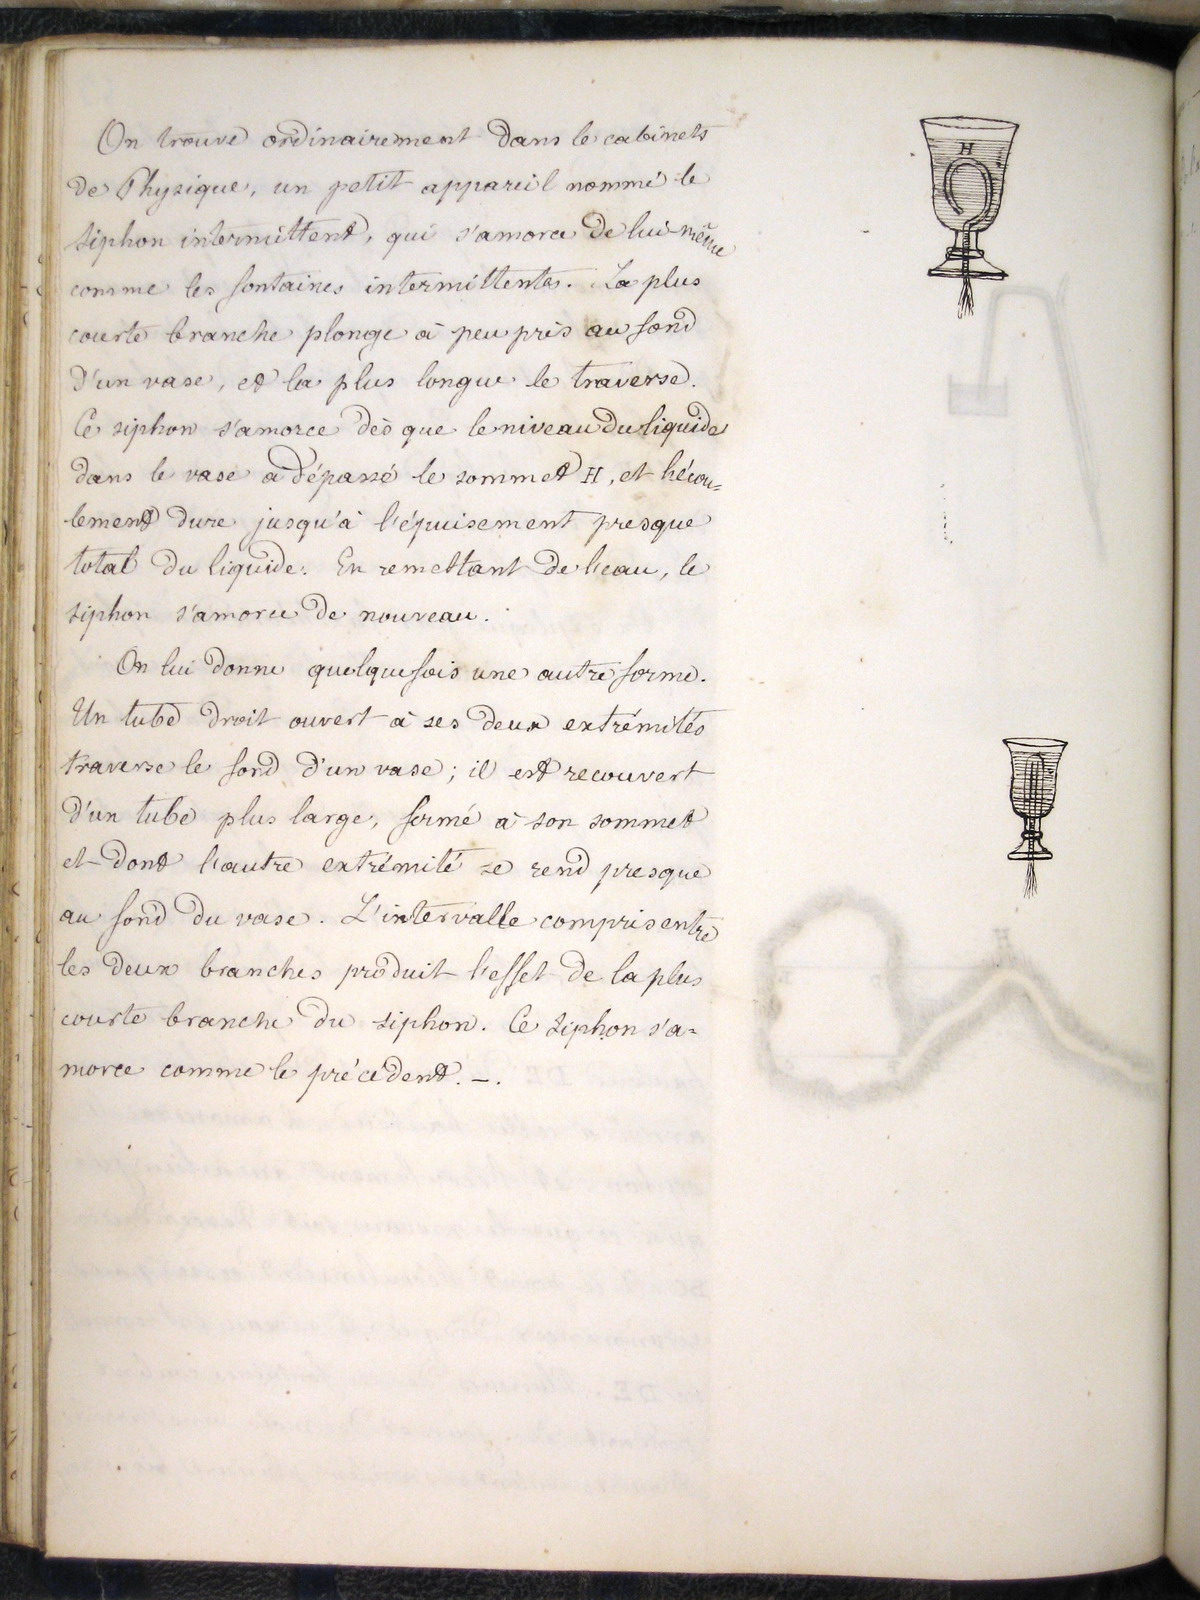 On trouve ordinairement dans le cabinets
de Physique, un petit appareil nommé le
siphon intermittent, qui s'amorce de lui-même
comme les fontaines intermittentes. La plus
courte branche plonge à peu près au fond
d'un vase, et la plus longue le traverse.
Ce siphon s'amorce dès que le niveau du liquide
dans le vase a dépassé le sommet H, et l'écou=
lement dure jusqu'à l'épuisement presque
total du liquide. En remettant de l'eau, le
siphon s'amorce de nouveau.
On lui donne quelquefois une autre forme.
Un tube droit ouvert à ses deux extrémités
traverse le fond d'un vase; il est recouvert
d'un tube plus large, fermé à son sommet
et dont l'autre extrémité se rend presque
au fond du vase. L'intervalle compris entre
les deux branches produit l'effet de la plus
courte branche du siphon. Ce siphon s'a=
morce comme le précédent. –.
H